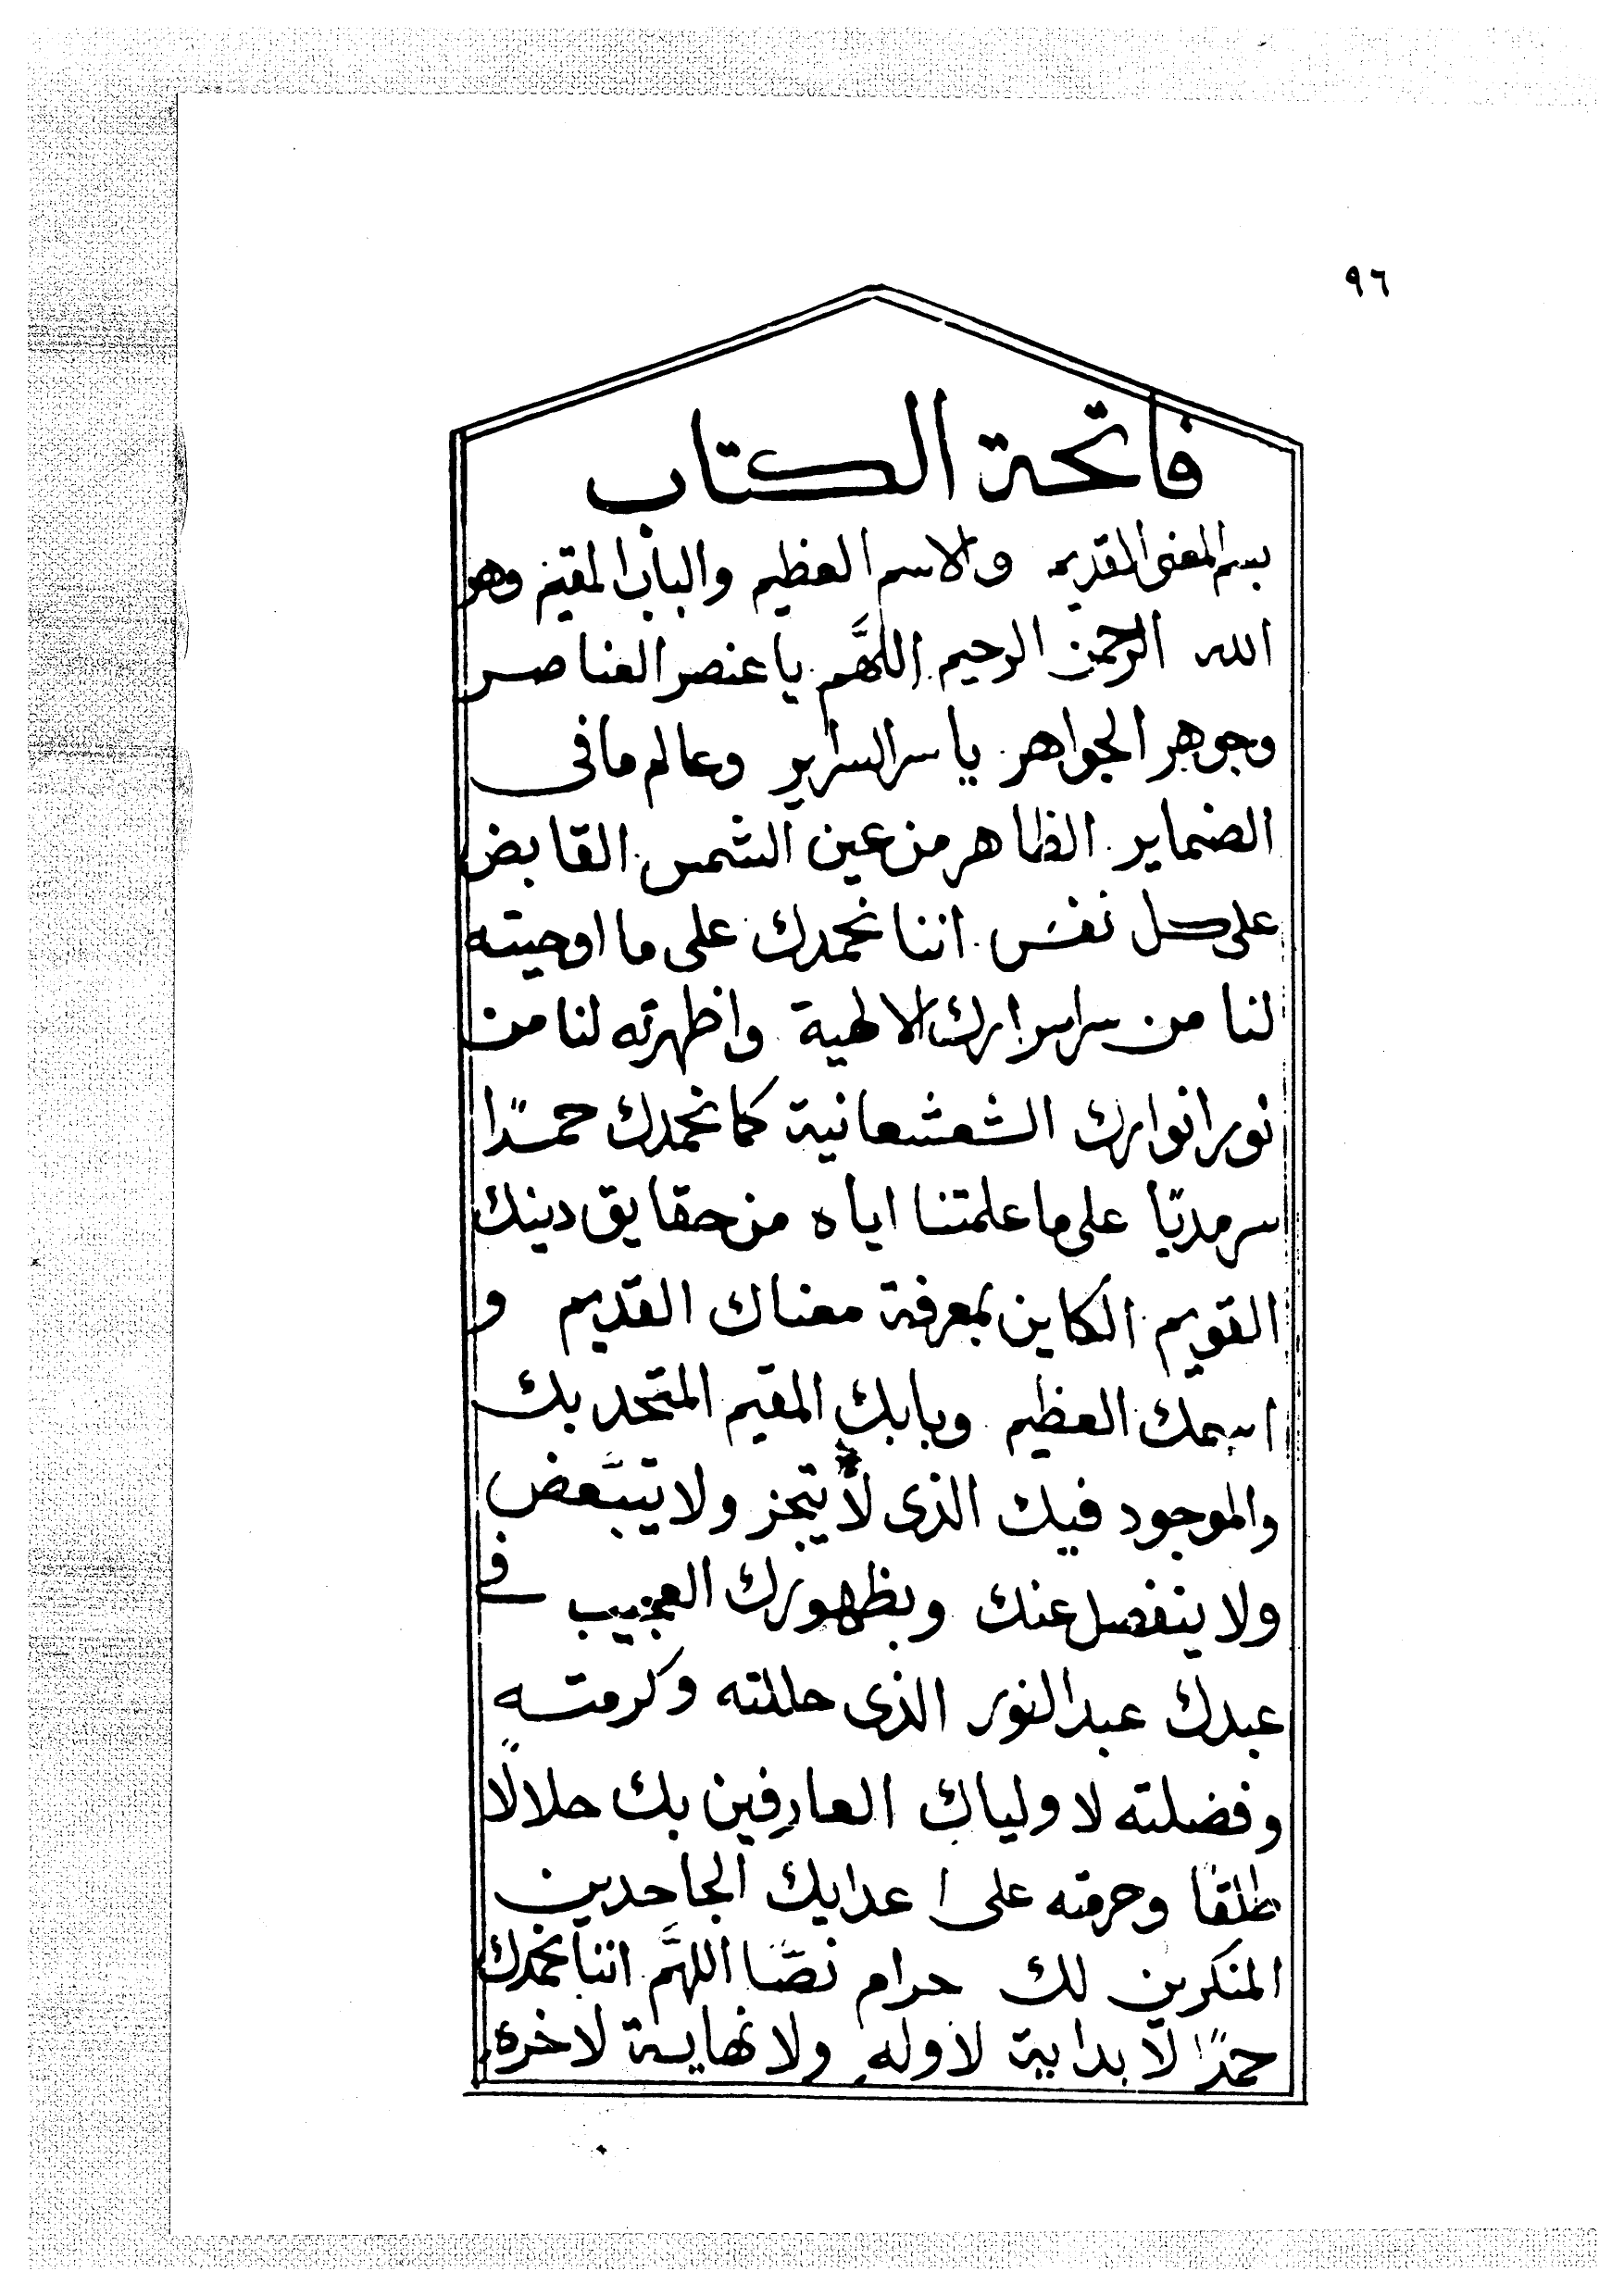 ٩٦
فاتحة الكتاب
بسم المعنى القديم والاسم العظيم والباب المقيم وهو
الله الرحمن الرحيم اللهَّم يا عنصر العناصر
وجوهر الجواهر. يا سر السراير وعالم ما فى
الضماير. الظاهر من عين الشمس. القابض
على كل نفسَ. اننا نحمدك على ما اوحيته
لنا من سر اسرارك الالهية واظهرته لنا من
نور انوارك الشعشعانية كما نحمدك حمدًا
سرمديّا على ما علمتنا اياه من حقايق دينك
القويم. الكاين بمعرفة معناك القديم و
اسمك العظيم. وبابك المقيم المتحد بك
والموجود فيك الذى لا يتجز ولا يتبَّعض
ولا ينفصل عنك وبظهورك العجيب فى
عبدك عبد النور الذى حللته وكرمته
وفضلته لاولياك العارفين بك حلالًا
طلقًا وحرمته على اعدايك الجاحدين
المنكرين لك حرام نصًّا اللهَّم اننا نحمدك
حمدًا لا بداية لاوله ولا نهاية لاخره